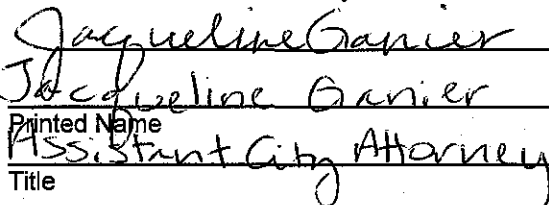 Jacqueline Ganier
Jacqueline Ganier
Printed Name
Assistant City Attorney
Title